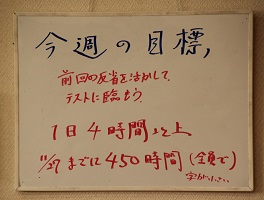 今週の目標,
前回の反省を活かして、
テストに臨もう。
1日4時間以上
11/27までに450時間(全員で)
字が小さい